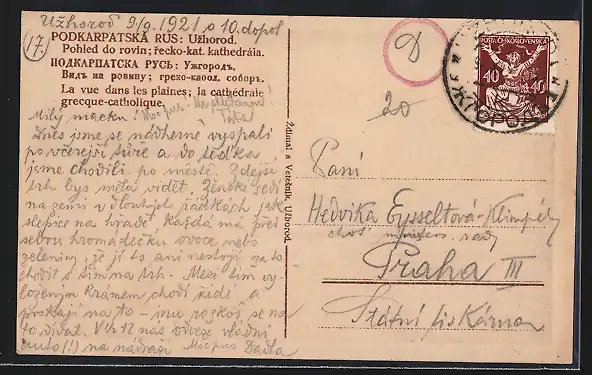 Užhorod 9/9. 1921 o 10. dopol
17.
PODKARPATSKÁ RUS: Užhorod.
Pohled do rovin; řecko-kat. kathedrála.
ПОДКАРПАТСКА РУСЬ: Ужгородъ.
Видъ на ровину; греко-каѳол. соборъ.
La vue dans les plaines; la cathédrale
grecque-catholique.
Milý macku! Moc pus.
Táta
Dnes jsme se nádherně vyspali
po včerejší a do teďka
jsme chodili po městě. Zdejší
trh bys měla vidět. Ženské sedí
na zemi v dlouhých řádkách jak
slepice na hradě, každá má před
sebou hromádečku ovoce nebo
zeleniny, že jí to ani nestojí za to
chodit s tím na trh. Mezi tím vy-
loženým krámem chodí židé a
pokají na to – inu rozkoš se na
to dívat. V ½ 12 nás odveze vládní
auto (!) na nádraží Moc pus Dadla
Ždímal a Vetešník, Užhorod.
D
20
POŠTA ČESKOSLOVENSKÁ
40 40
UŽHOROD
Paní
Hedvika Eysseltová-Klimpély
choť minister. rady
Praha III
Státní tiskárna